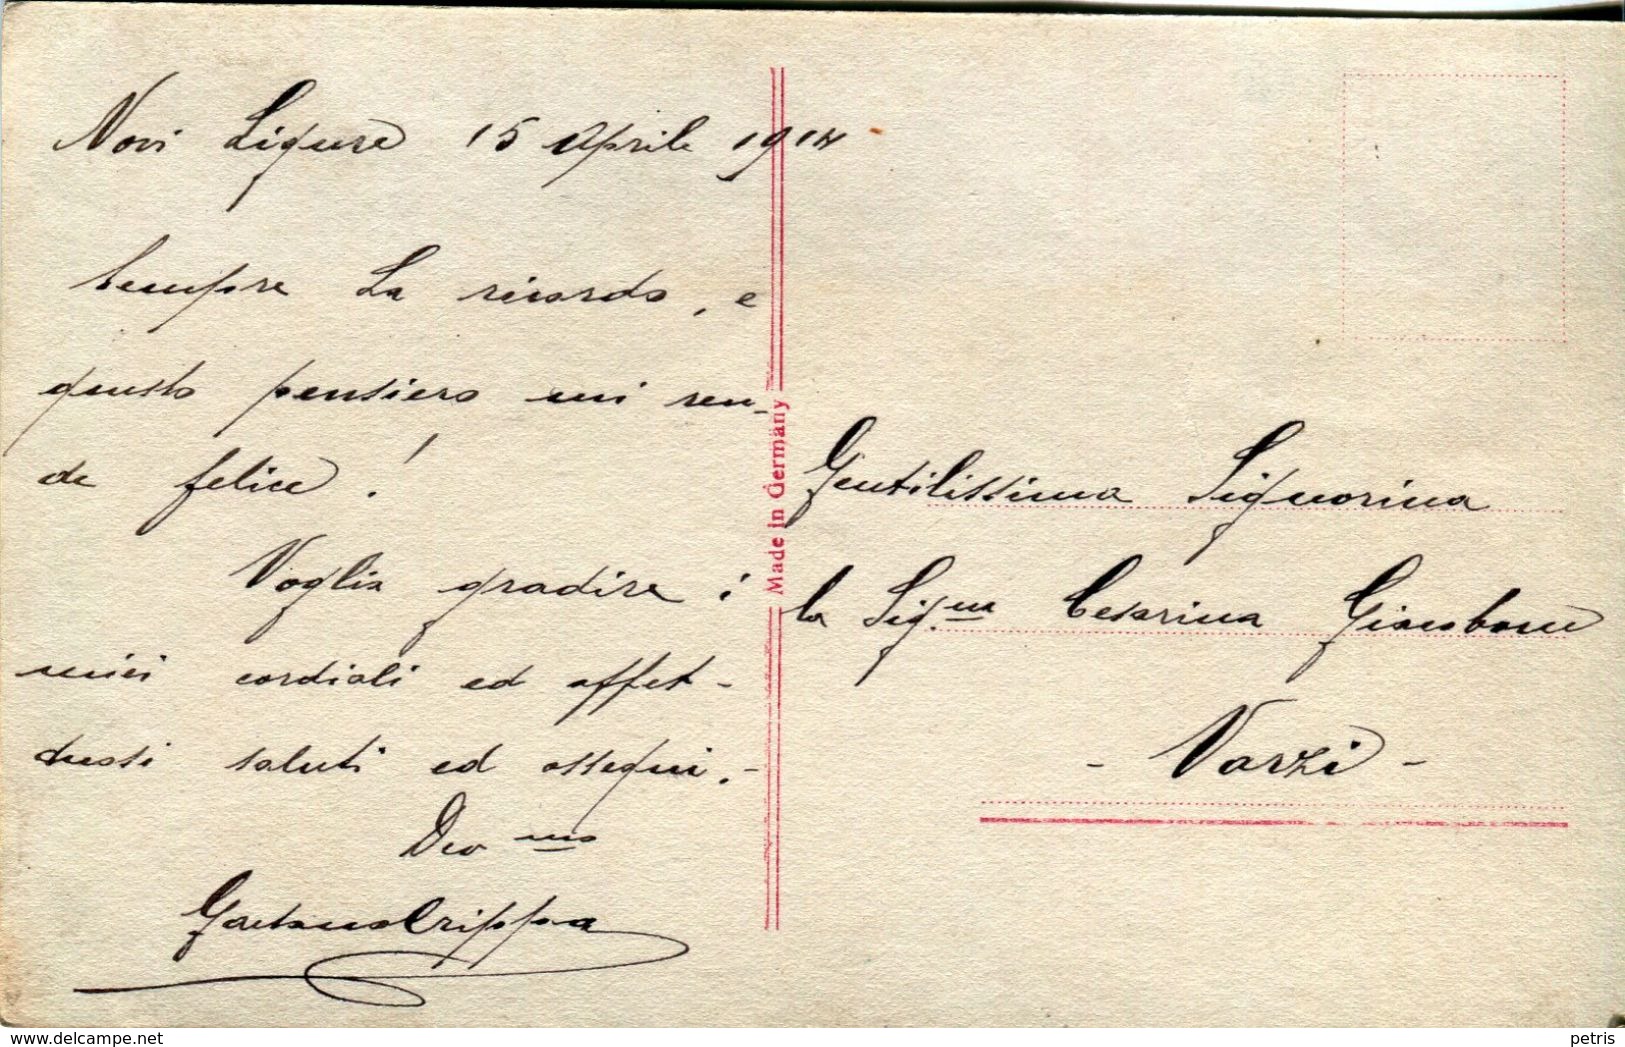 Novi Ligure 15 Aprile 1914
Sempre La ricordo, e
questo pensiero mi ren-
de felice!
Voglia gradire i
miei cordiali ed affet-
tuosi saluti ed ossequi.-
Dev mo
Gaetano Crippa
Made in Germany
Gentilissima Signorina
la Sig.na Cesarina Giacobone
- Varzi -
delcampe.net
petris